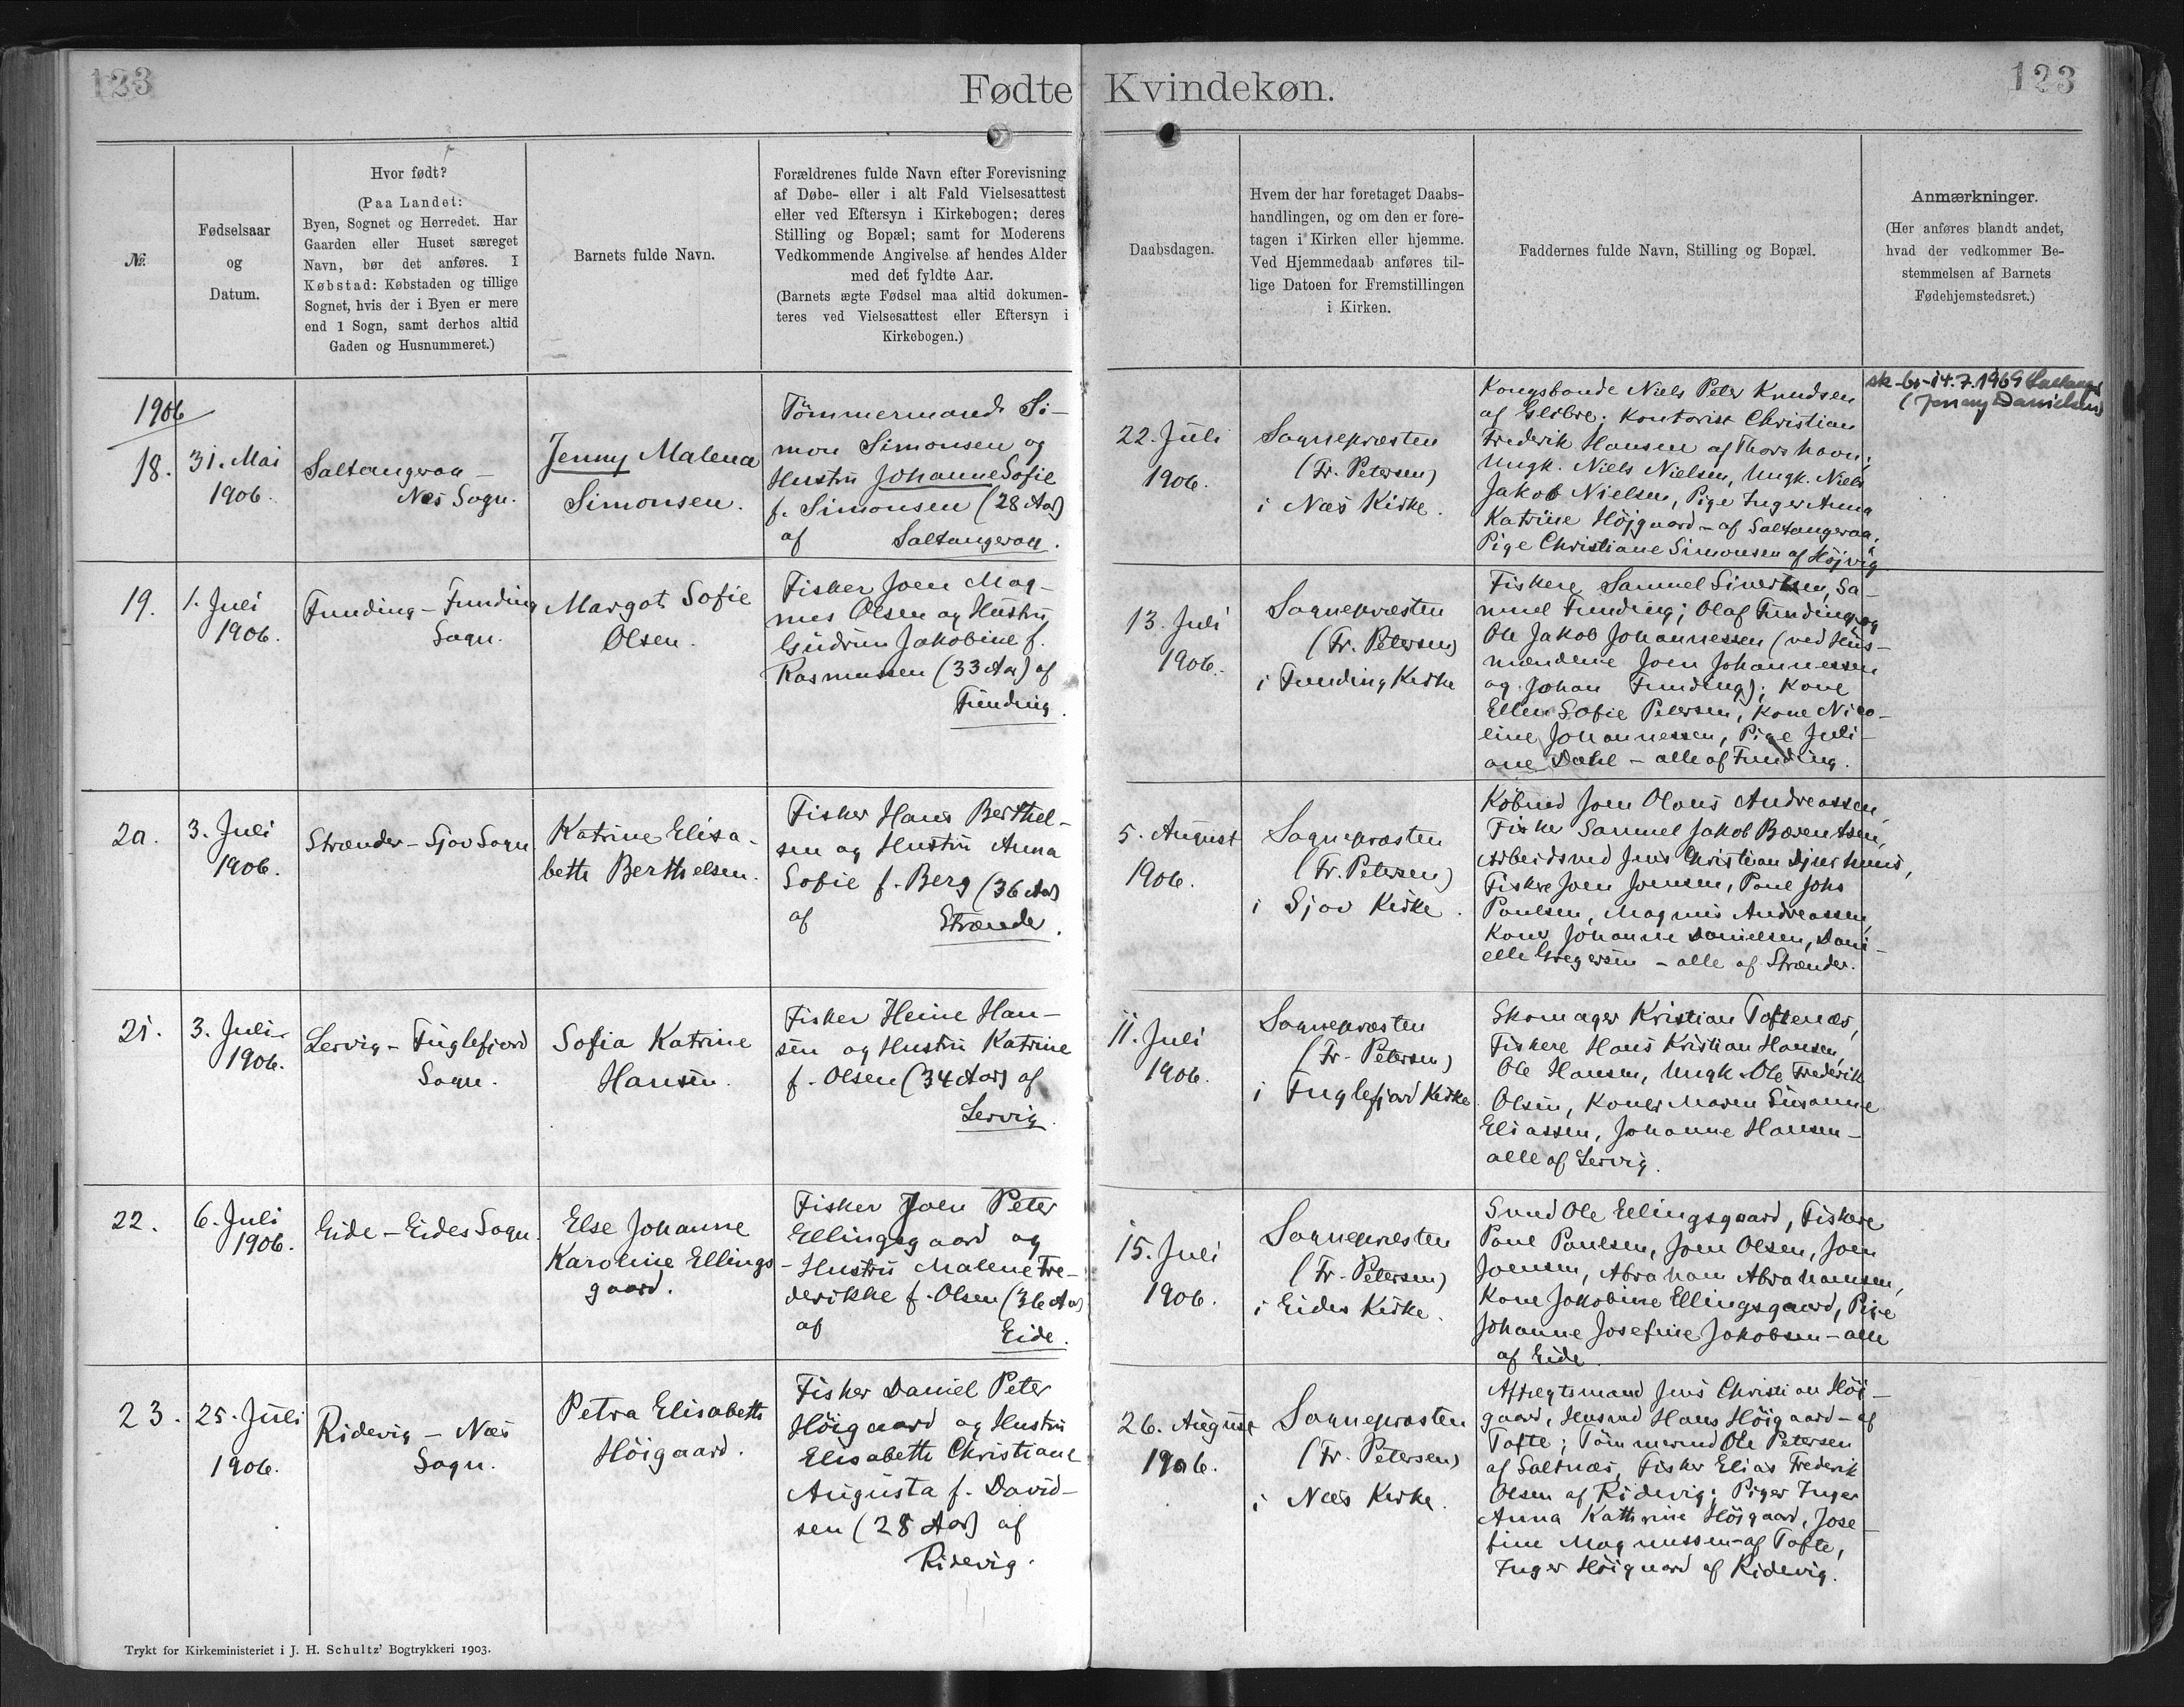 123
Fødte Kvindekøn.
123
№.
Fødselsaar
og
Datum.
Hvor født?
(Paa Landet:
Byen, Sognet og Herredet. Har
Gaarden eller Huset særeget
Navn, bør det anføres. I
Købstad: Købstaden og tillige
Sognet, hvis der i Byen er mere
end 1 Sogn, samt derhos altid
Gaden og Husnummeret.)
Barnets fulde Navn.
Forældrenes fulde Navn efter Forevisning
af Døbe- eller i alt Fald Vielsesattest
eller ved Eftersyn i Kirkebogen; deres
Stilling og Bopæl; samt for Moderens
Vedkommende Angivelse af hendes Alder
med det fyldte Aar.
(Barnets ægte Fødsel maa altid dokumen-
teres ved Vielsesattest eller Eftersyn i
Kirkebogen.)
Daabsdagen.
Hvem der har foretaget Daabs-
handlingen, og om den er fore-
tagen i Kirken eller hjemme.
Ved Hjemmedaab anføres til-
lige Datoen for Fremstillingen
i Kirken.
Faddernes fulde Navn, Stilling og Bopæl.
Anmærkninger.
(Her anføres blandt andet,
hvad der vedkommer Be-
stemmelsen af Barnets
Fødehjemstedsret.)
1906
18.
31. Mai
1906.
Saltangeraa -
Næs Sogn.
Jenny Malena
Simonsen.
Tömmermand Si-
mon Simonsen og
Hustru Johanne Sofie
f. Simonsen (28 Aar)
af Saltangeraa.
22. Juli
1906.
Sognepræsten
(Fr. Petersen)
i Næs Kirke.
Kongsbonde Niels Peter Knudsen
af Glibre; Kontorist Christian
Frederik Hansen af Thorshavn;
Ungk. Niels Nielsen, Ungk. Niels
Jakob Nielsen, Pige Inger Anna
Katrine Højgaard - af Saltangeraa;
Pige Christiane Simonsen af Højvig
sk-br-14.7.1969
(Jenny Danielsen)
19.
1. Juli
1906.
Funding - Funding
Sogn.
Margot Sofie
Olsen.
Fisker Joen Mag-
nus Olsen og Hustru
Gudrun Jakobine f.
Rasmussen (33 Aar) af
Funding.
13. Juli
1906.
Sognepræsten
(Fr. Petersen)
i Funding Kirke
Fiskere Samuel Sivertsen, Sa-
muel Funding; Olaf Funding og
Ole Jakob Johannessen (ved Hus-
mændene Joen Johannessen
og Johan Funding); Kone
Ellen Sofie Petersen, Kone Nico-
line Johannessen, Pige Juli-
ane Dahl - alle af Funding.
20.
3. Juli
1906.
Strænder - Sjov Sogn
Katrine Elisa-
beth Berthelsen.
Fisker Hans Berthel-
sen og Hustru Anna
Sofie f. Berg (36 Aar)
af Strænder.
5. August
1906.
Sognepræsten
(Fr. Petersen)
i Sjov Kirke.
Købmd Joen Olaus Andreassen,
Fisker Samuel Jakob Bærentsen,
Arbeidsmd Jens Christian Djurhuus,
Fiskere Joen Joensen, Poul Johs
Poulsen, Magnus Andreassen,
Koner Johanne Danielsen, Dani-
elle Gregersen - alle af Strænder.
21.
3. Juli
1906.
Lervig - Fuglefjord
Sogn.
Sofia Katrine
Hansen.
Fisker Heine Han-
sen og Hustru Katrine
f. Olsen (34 Aar) af
Lervig.
11. Juli
1906.
Sognepræsten
(Fr. Petersen)
i Fuglefjord Kirke.
Skomager Kristian Toftenæs,
Fiskere Hans Kristian Hansen,
Ole Hansen, Ungk. Ole Frederik
Olsen, Koner Maren Susanne
Eliassen, Johanne Hansen -
alle af Lervig.
22.
6. Juli
1906.
Eide - Eides Sogn.
Else Johanne
Karoline Ellings-
gaard.
Fisker Joen Peter
Ellingsgaard og
Hustru Malene Fre-
derikke f. Olsen (36 Aar)
af Eide.
15. Juli
1906.
Sognepræsten
(Fr. Petersen)
i Eides Kirke.
Smed Ole Ellingsgaard, Fiskere
Poul Poulsen, Joen Olsen, Joen
Joensen, Abraham Abrahamsen,
Kone Jakobine Ellingsgaard, Pige
Johanne Josefine Jakobsen - alle
af Eide.
23.
25. Juli
1906.
Ridevig - Næs
Sogn.
Petra Elisabeth
Höigaard.
Fisker Daniel Peter
Höigaard og Hustru
Elisabeth Christiane
Augusta f. David-
sen (28 Aar) af
Ridevig.
26. August
1906.
Sognepræsten
(Fr. Petersen)
i Næs Kirke.
Aftægtsmand Jens Christian Höi-
gaard, Husmd Hans Höigaard - af
Tofte; Tömmermd Ole Petersen
af Saltnæs, Fisker Elias Frederik
Olsen af Ridevig; Piger Inger
Anna Kathrine Höigaard, Jose-
fine Magnussen - af Tofte,
Inger Höigaard af Ridevig.
Trykt for Kirkeministeriet i J. H. Schultz' Bogtrykkeri 1903.